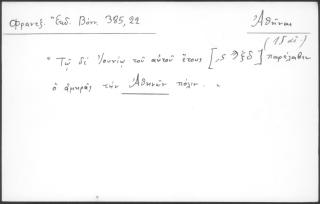 Φρανεζ. Ἔκδ. Βόνν. 385, 22
Ἀθῆναι
(15 αἰ.)
" Τῷ δὲ Ἰουνίῳ τοῦ αὐτοῦ ἔτους [,ς ϡ ξδ] παρέλαβεν
ὁ ἀμηρᾶς τὴν Ἀθηνῶν πόλιν. "